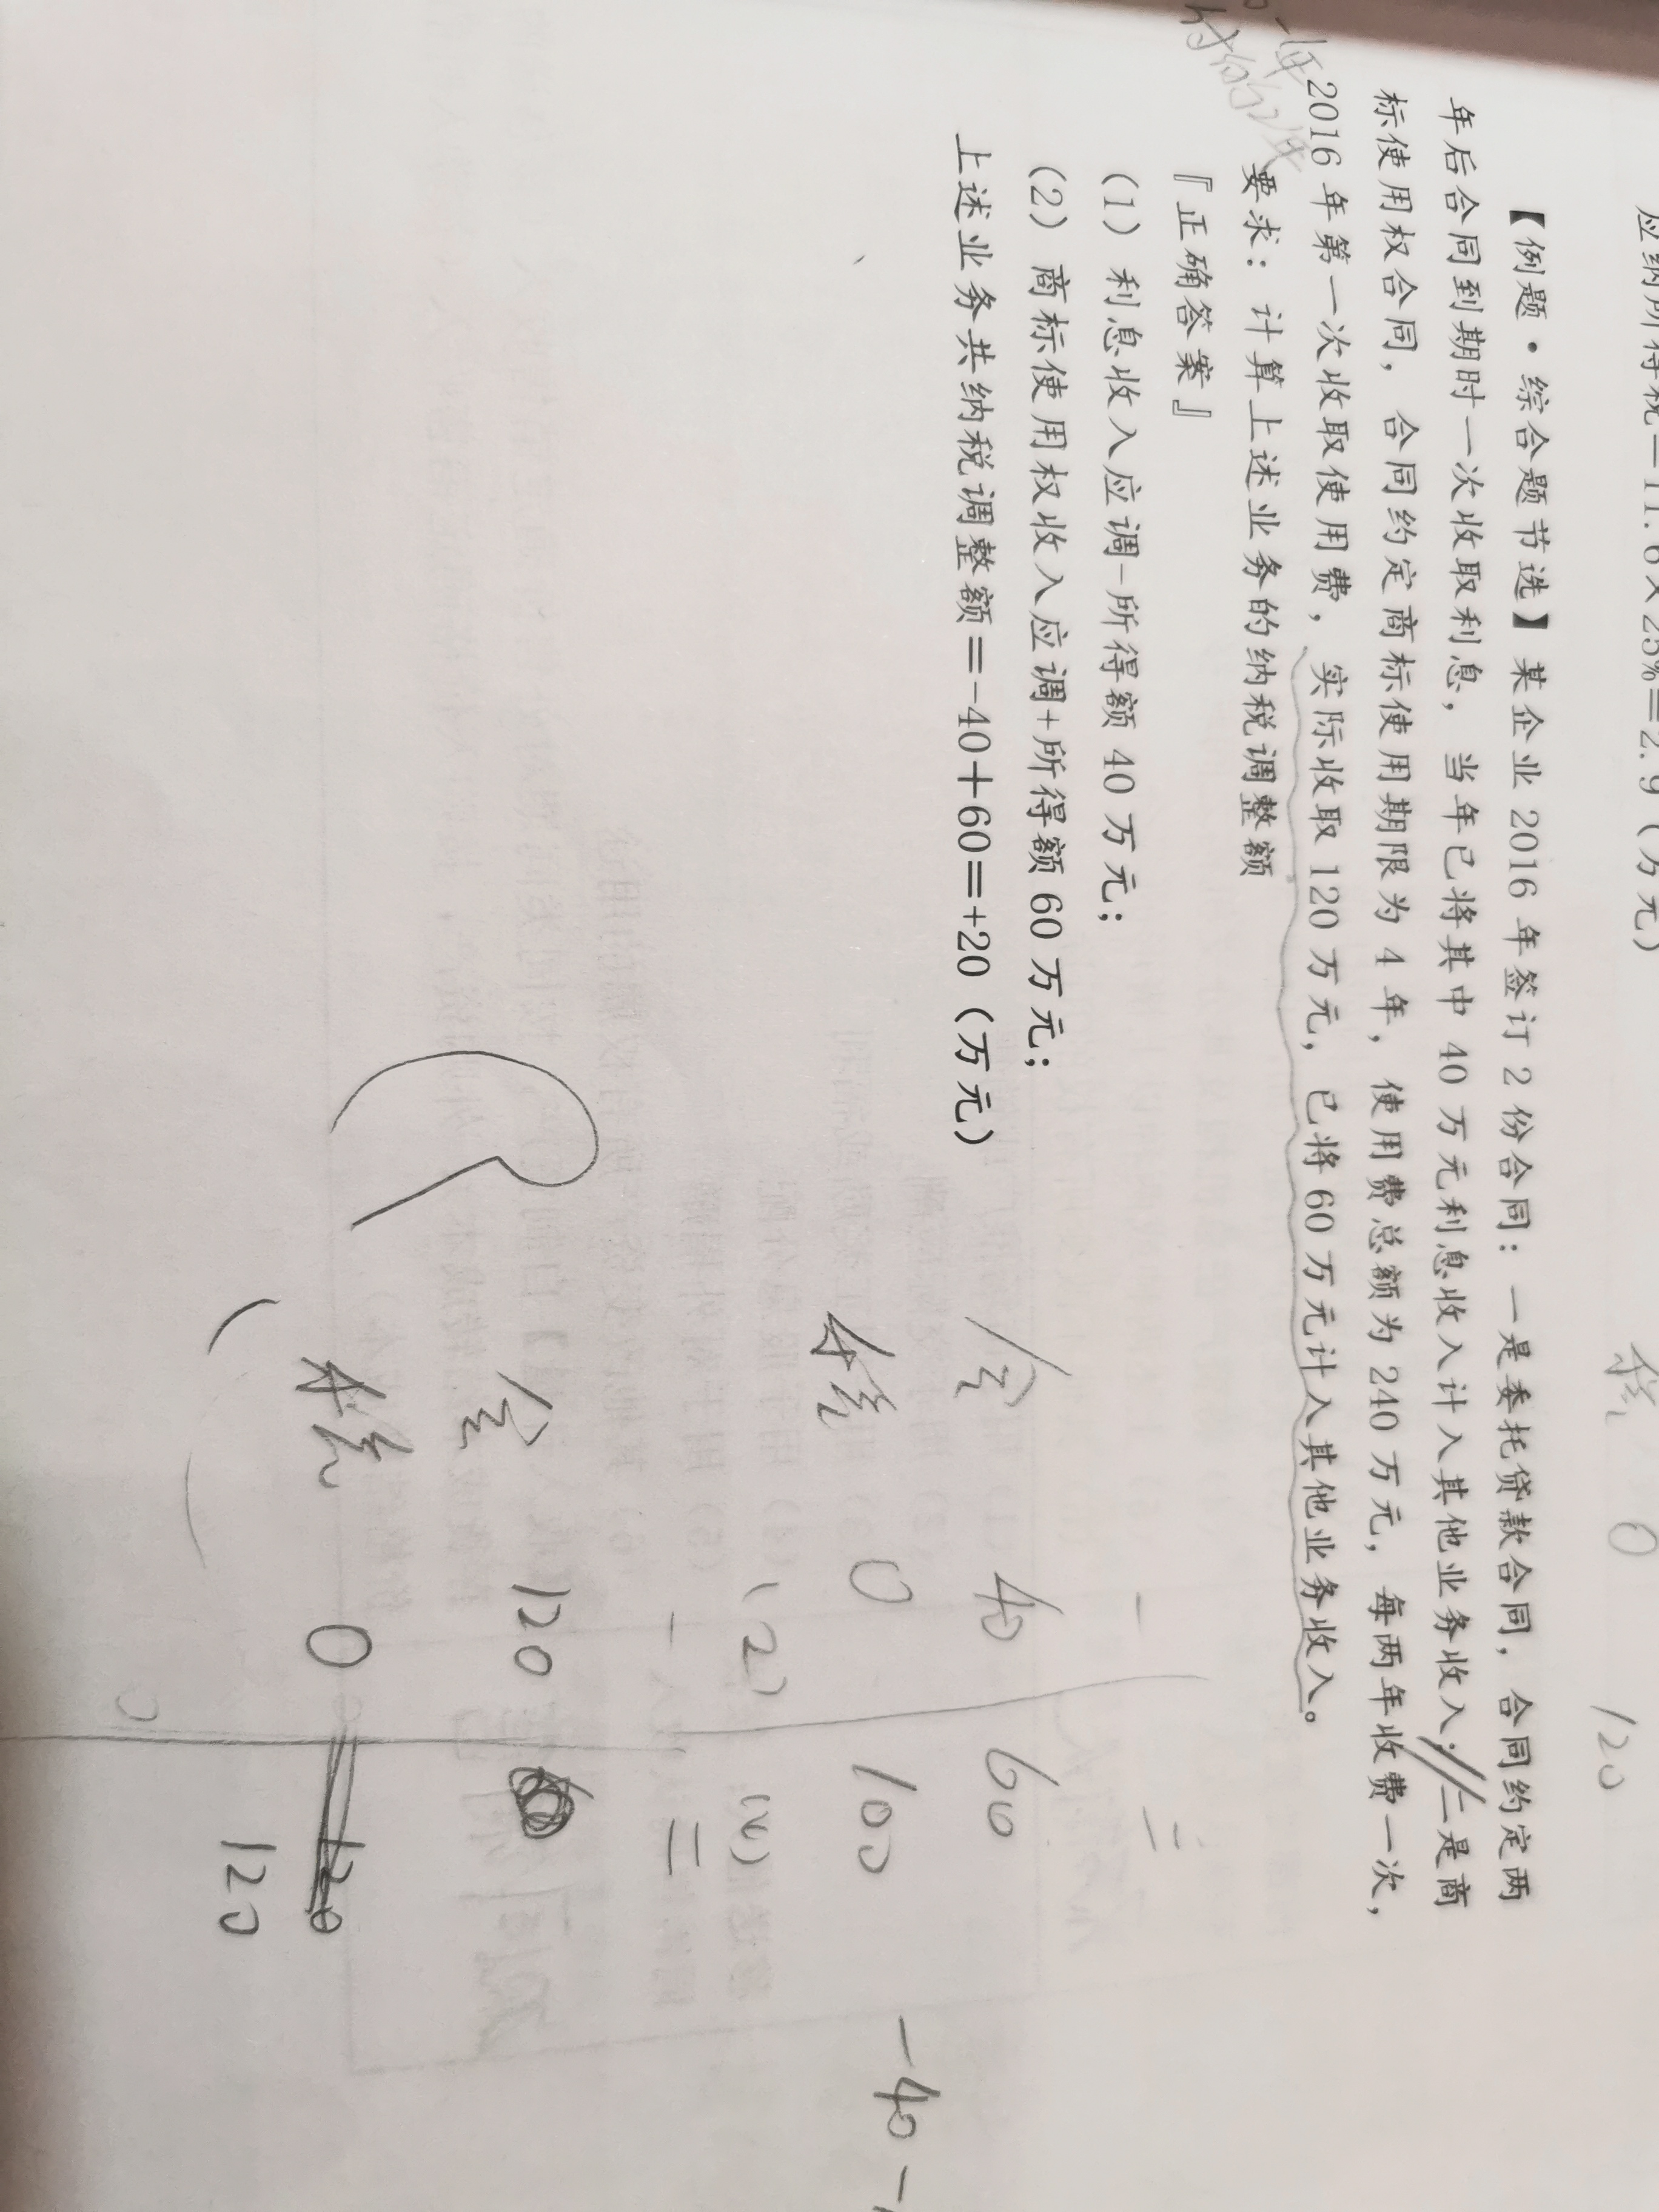 应纳所得税=11.6×25%=2.9(万元)
税 0 120
【例题·综合题节选】某企业 2016 年签订 2 份合同:一是委托贷款合同,合同约定两
年后合同到期时一次收取利息,当年已将其中 40 万元利息收入计入其他业务收入;二是商
标使用权合同,合同约定商标使用期限为 4 年,使用费总额为 240 万元,每两年收费一次,
2016 年第一次收取使用费,实际收取 120 万元,已将 60 万元计入其他业务收入。
要求:计算上述业务的纳税调整额
『正确答案』
(1)利息收入应调-所得额 40 万元;
(2)商标使用权收入应调+所得额 60 万元;
上述业务共纳税调整额=-40+60=+20(万元)
一 二
会 40 60
税 0 100
-40 -
(2) (2)
一 二
会 120
税 0 120
120